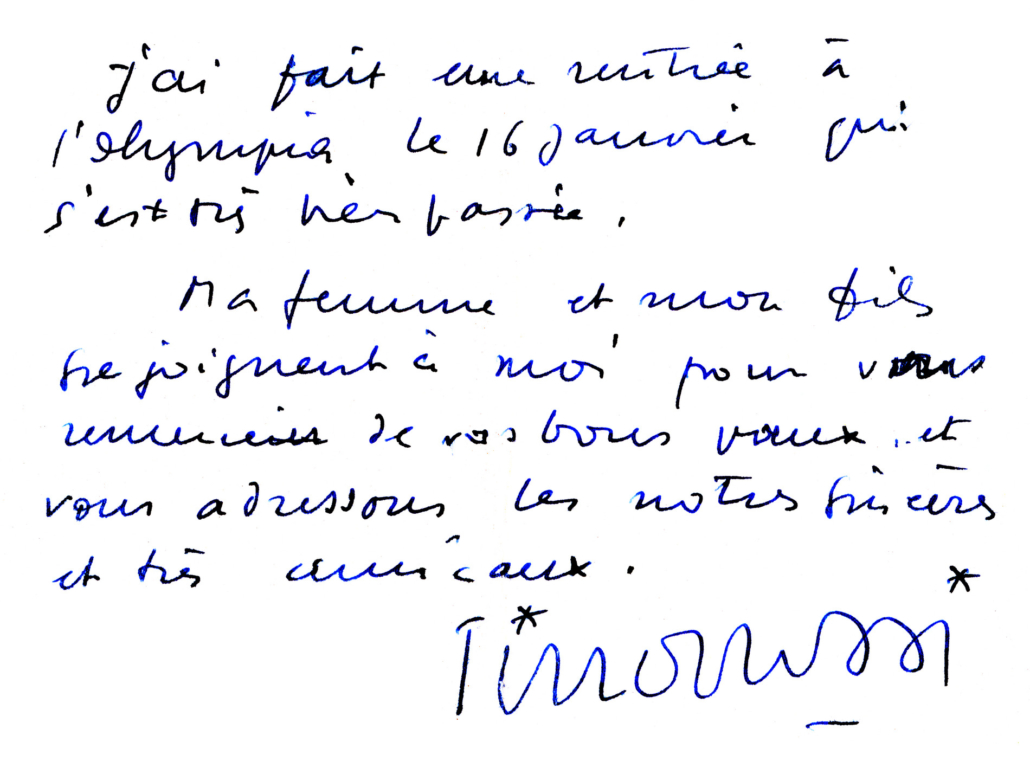 J'ai fait une rentrée à
l'Olympia le 16 Janvier qui
s'est très bien passée.
Ma femme et mon fils
se joignent à moi pour vous
remercier de vos bons vœux, et
vous adressons les notres sincères
et très amicaux.